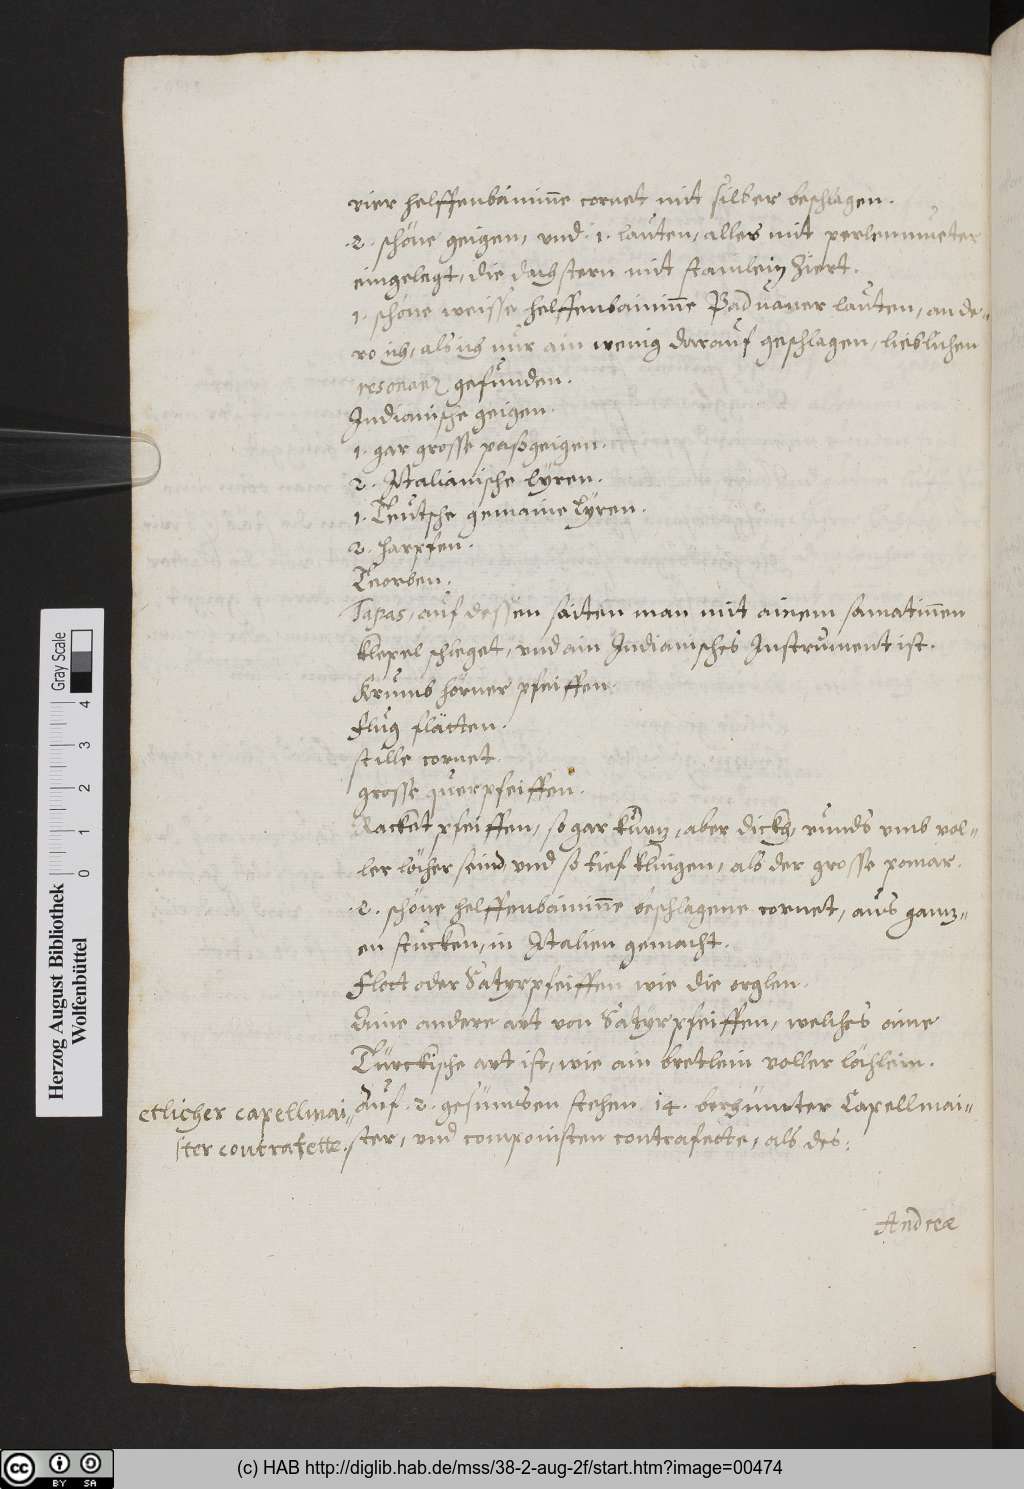 vier helffenbainine cornet mit silber beschlagen.
.2. schöne geigen, und .1. lauten, alles mit perlenmueter
eingelegt, die dachstern mit stainlein ziert.
1. schöne weisse helffenbainine Paduaner lauten, an de-
ro ich, als ich nur ain wenig darauf geschlagen, lieblichen
resonanz gefunden.
Indianische geigen.
1. gar grosse passgeigen.
2. Italianische lÿren.
1. Teutsche gemaine lÿren.
2. harpfen.
Teorben.
auf dessen saiten man mit ainem
klepel schleget, und ain Indianisches Instrument ist.
Krumb hörner pfeiffen.
flug flätten.
stille cornet.
grosse querpfeiffen.
Racket pfeiffen, so gar kurz, aber dickh, runds umb vol-
ler löcher seind und so tief klingen, als der grosse pomar.
.2. schöne helffenbainine beschlagene cornet, aus ganz-
en stucken, in Italien gemacht.
Flott oder Satyrpfeiffen wie die orglen.
Aine andere art von Satÿrpfeiffen, welches aine
Türckische art ist, wie ain bretlein voller löchlein.
Auf .2. gesimbsen stehen 14. berhümter Capellmai-
ster, und componisten contrafecte, als des:
etlicher capellmai-
ster contrafette.
Andreæ
Herzog August Bibliothek
Wolfenbüttel
Gray Scale
0 1 2 3 4
cc BY SA
(c) HAB http://diglib.hab.de/mss/38-2-aug-2f/start.htm?image=00474